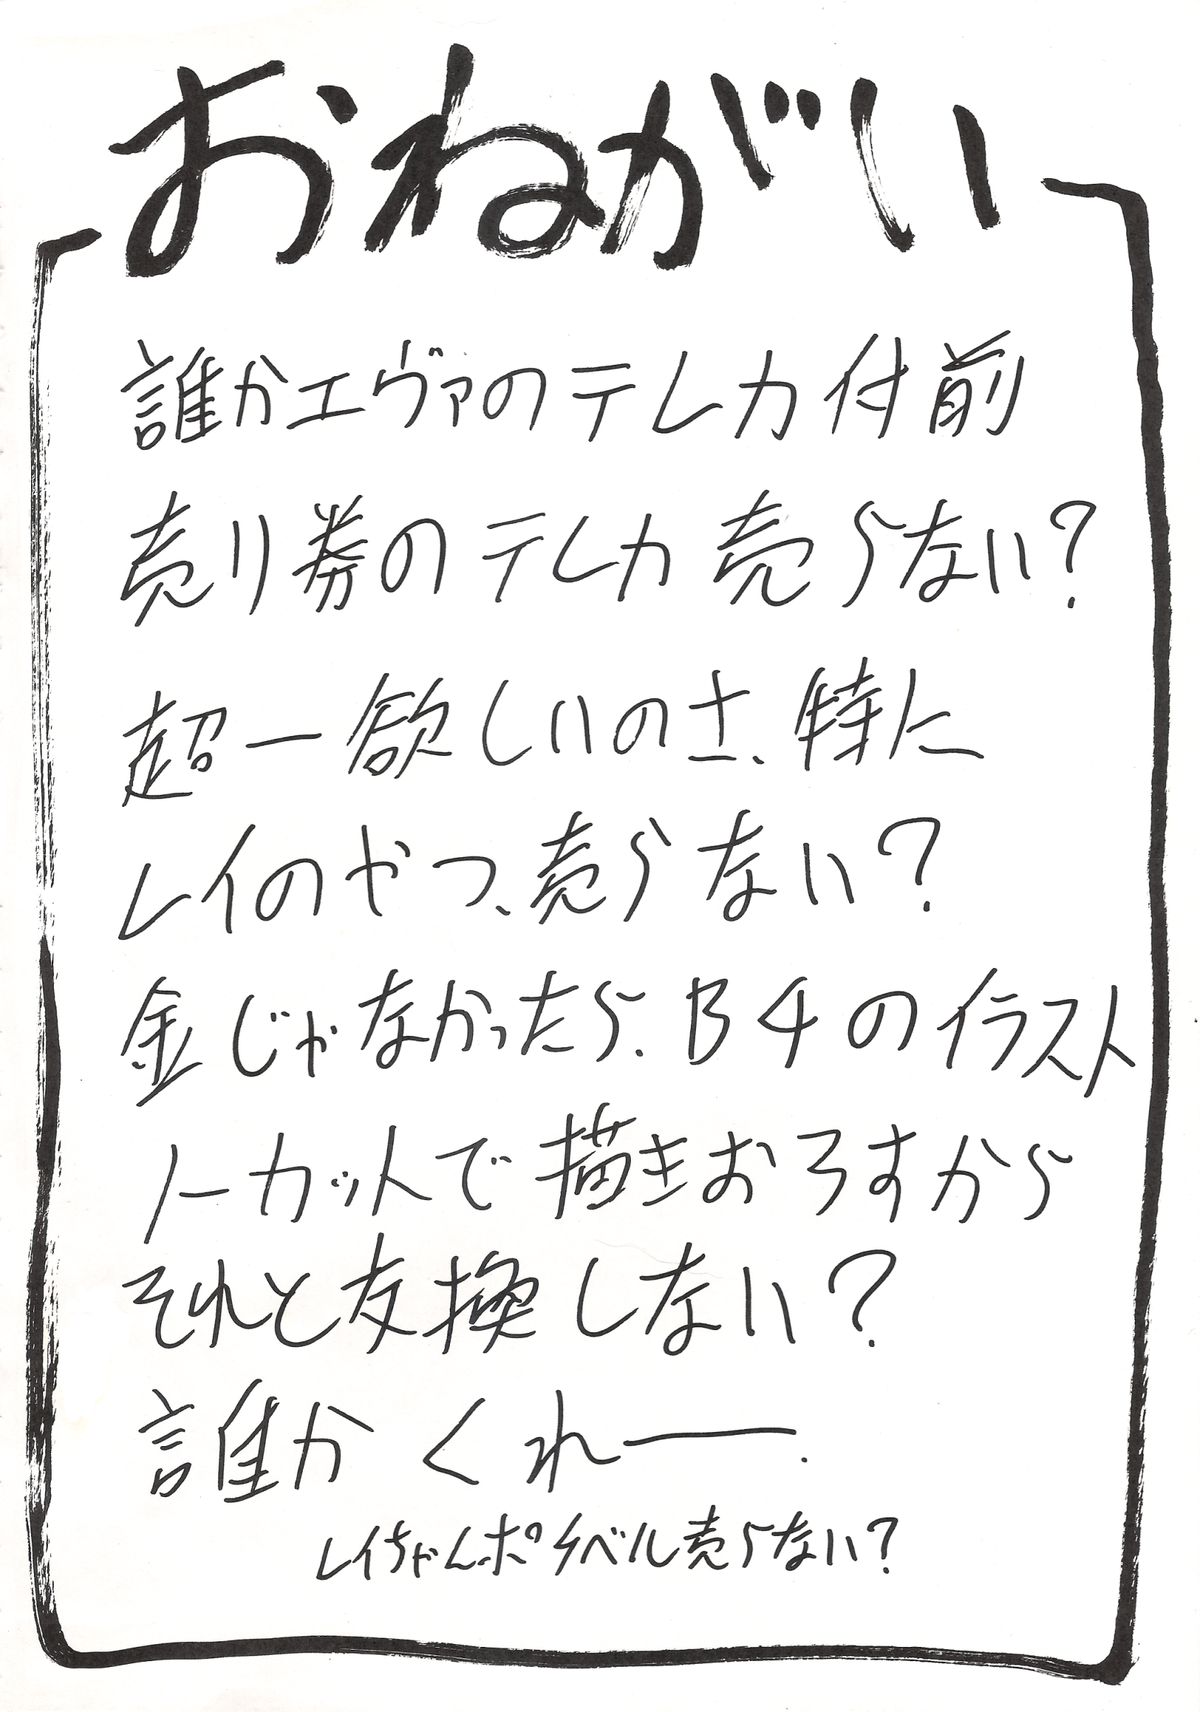 おねがい
誰かエヴァのテレカ付前
売り券のテレカ売らない?
超ー欲しいのさ、特に
レイのやつ、売らない?
金じゃなかったら、B4のイラスト
ノーカットで描きおろすから
それと交換しない?
誰かくれー.
レイちゃんポケベル売らない?